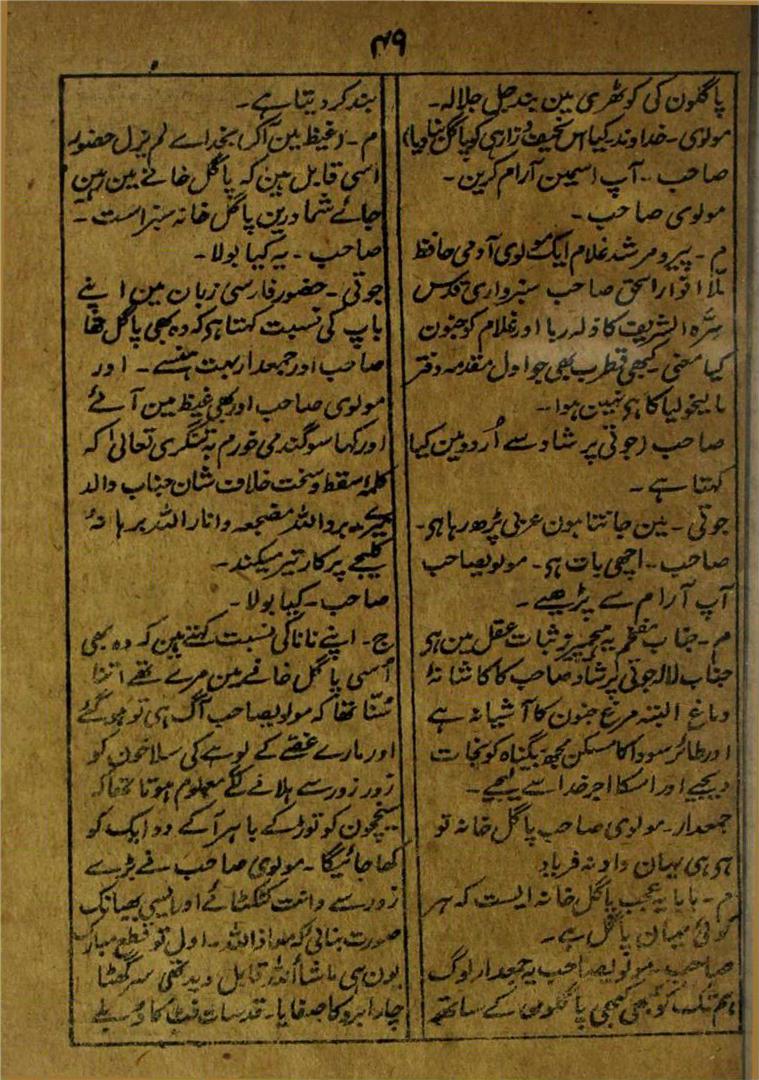 ۴۹
پاگلون کی کوٹھری مین بند جل جلالہ۔
مولوی۔ خداوند کیا اس نحیف و زار ہی کو پاگل بنا دیا)
صاحب۔ آپ اسمین آرام کرین۔
مولوی صاحب۔
م۔ پیر و مرشد غلام ایک مولوی آدمی حافظ
ملا انوار الحق صاحب سبزواری قدس
سرہ الشریف کا ولہ ربا اور غلام کو جنون
کیا معنی کبھی قطرب بھی جو اول مقدمہ دفتر
مالیخولیا کا ہو نہین ہوا۔
صاحب (جوتی پرشاد سے اُردو مین کیا
کہتا ہے۔
جوتی۔ مین جانتا ہون عربی پڑھ رہا ہی۔
صاحب۔ اچھی بات ہی۔ مولویصاحب
آپ آرام سے پڑھیے۔
م۔ جناب معظم یہ ہیچمیرز ثبات عقل مین ہو
جناب لالہ جوتی پرشاد صاحب کا کاشانۂ
دماغ البتہ مرغ جنون کا آشیانہ ہے
اور طائر سودا کا مسکن مجھ بیگناہ کو نجات
دیجیے اور اسکا اجر خدا سے لیجیے۔
جمعدار۔ مولوی صاحب پاگل خانہ تو
ہی ہی یہان داد نہ فریاد
م۔ بابا یہ عجب پاگل خانہ ایست کہ ہر
کوئی یہان پاگل ہے۔
صاحب۔ مولویصاحب یہ جمعدار لوگ
ہم تک کو بھی کبھی پاگلون کے ساتھ
بند کر دیتا ہے۔
م۔ (غیظ مین آکر) بخداے لم یزل حضور
اسی قابل ہین کہ پاگل خانے مین رہین
جائے شما درین پاگل خانہ سبز است۔
صاحب۔ یہ کیا بولا۔
جوتی۔ حضور فارسی زبان مین اپنے
باپ کی نسبت کہتا ہو کہ وہ بھی پاگل تھا
صاحب اور جمعدار بہت ہنسے۔ اور
مولوی صاحب اور بھی غیظ مین آئے
اور کہا سوگند می خورم بہ تنگری تعالیٰ کہ
کلمۂ اسقط و سخت خلاف شان جناب والد
میرے برد اللہ مضجعہ و انار اللہ برہانہٗ
کلیجے پر کار تیر میکند۔
صاحب۔ کیا بولا۔
ج۔ اپنے نانا کی نسبت کہتے ہین کہ وہ بھی
اُسی پاگل خانے مین مرے تھے اتنا
سُننا تھا کہ مولویصاحب آگ ہی تو ہو گئے
اور مارے غصے کے لوہے کی سلاخون کو
زور زور سے ہلانے لگے معلوم ہوتا تھا کہ
سیخچون کو توڑ کے باہر آ کے دو ایک کو
کھا جائیگا۔ مولوی صاحب نے بڑے
زور سے دانت کٹکٹائے اور ایسی بھیانک
صورت بنائی کہ معاذ اللہ۔ اول تو قطع مبارک
یون ہی ماشاء اللہ قابل دید تھی سر گھٹا
چار ابرو کا صفایا۔ قد سات فٹ کا دُبلے